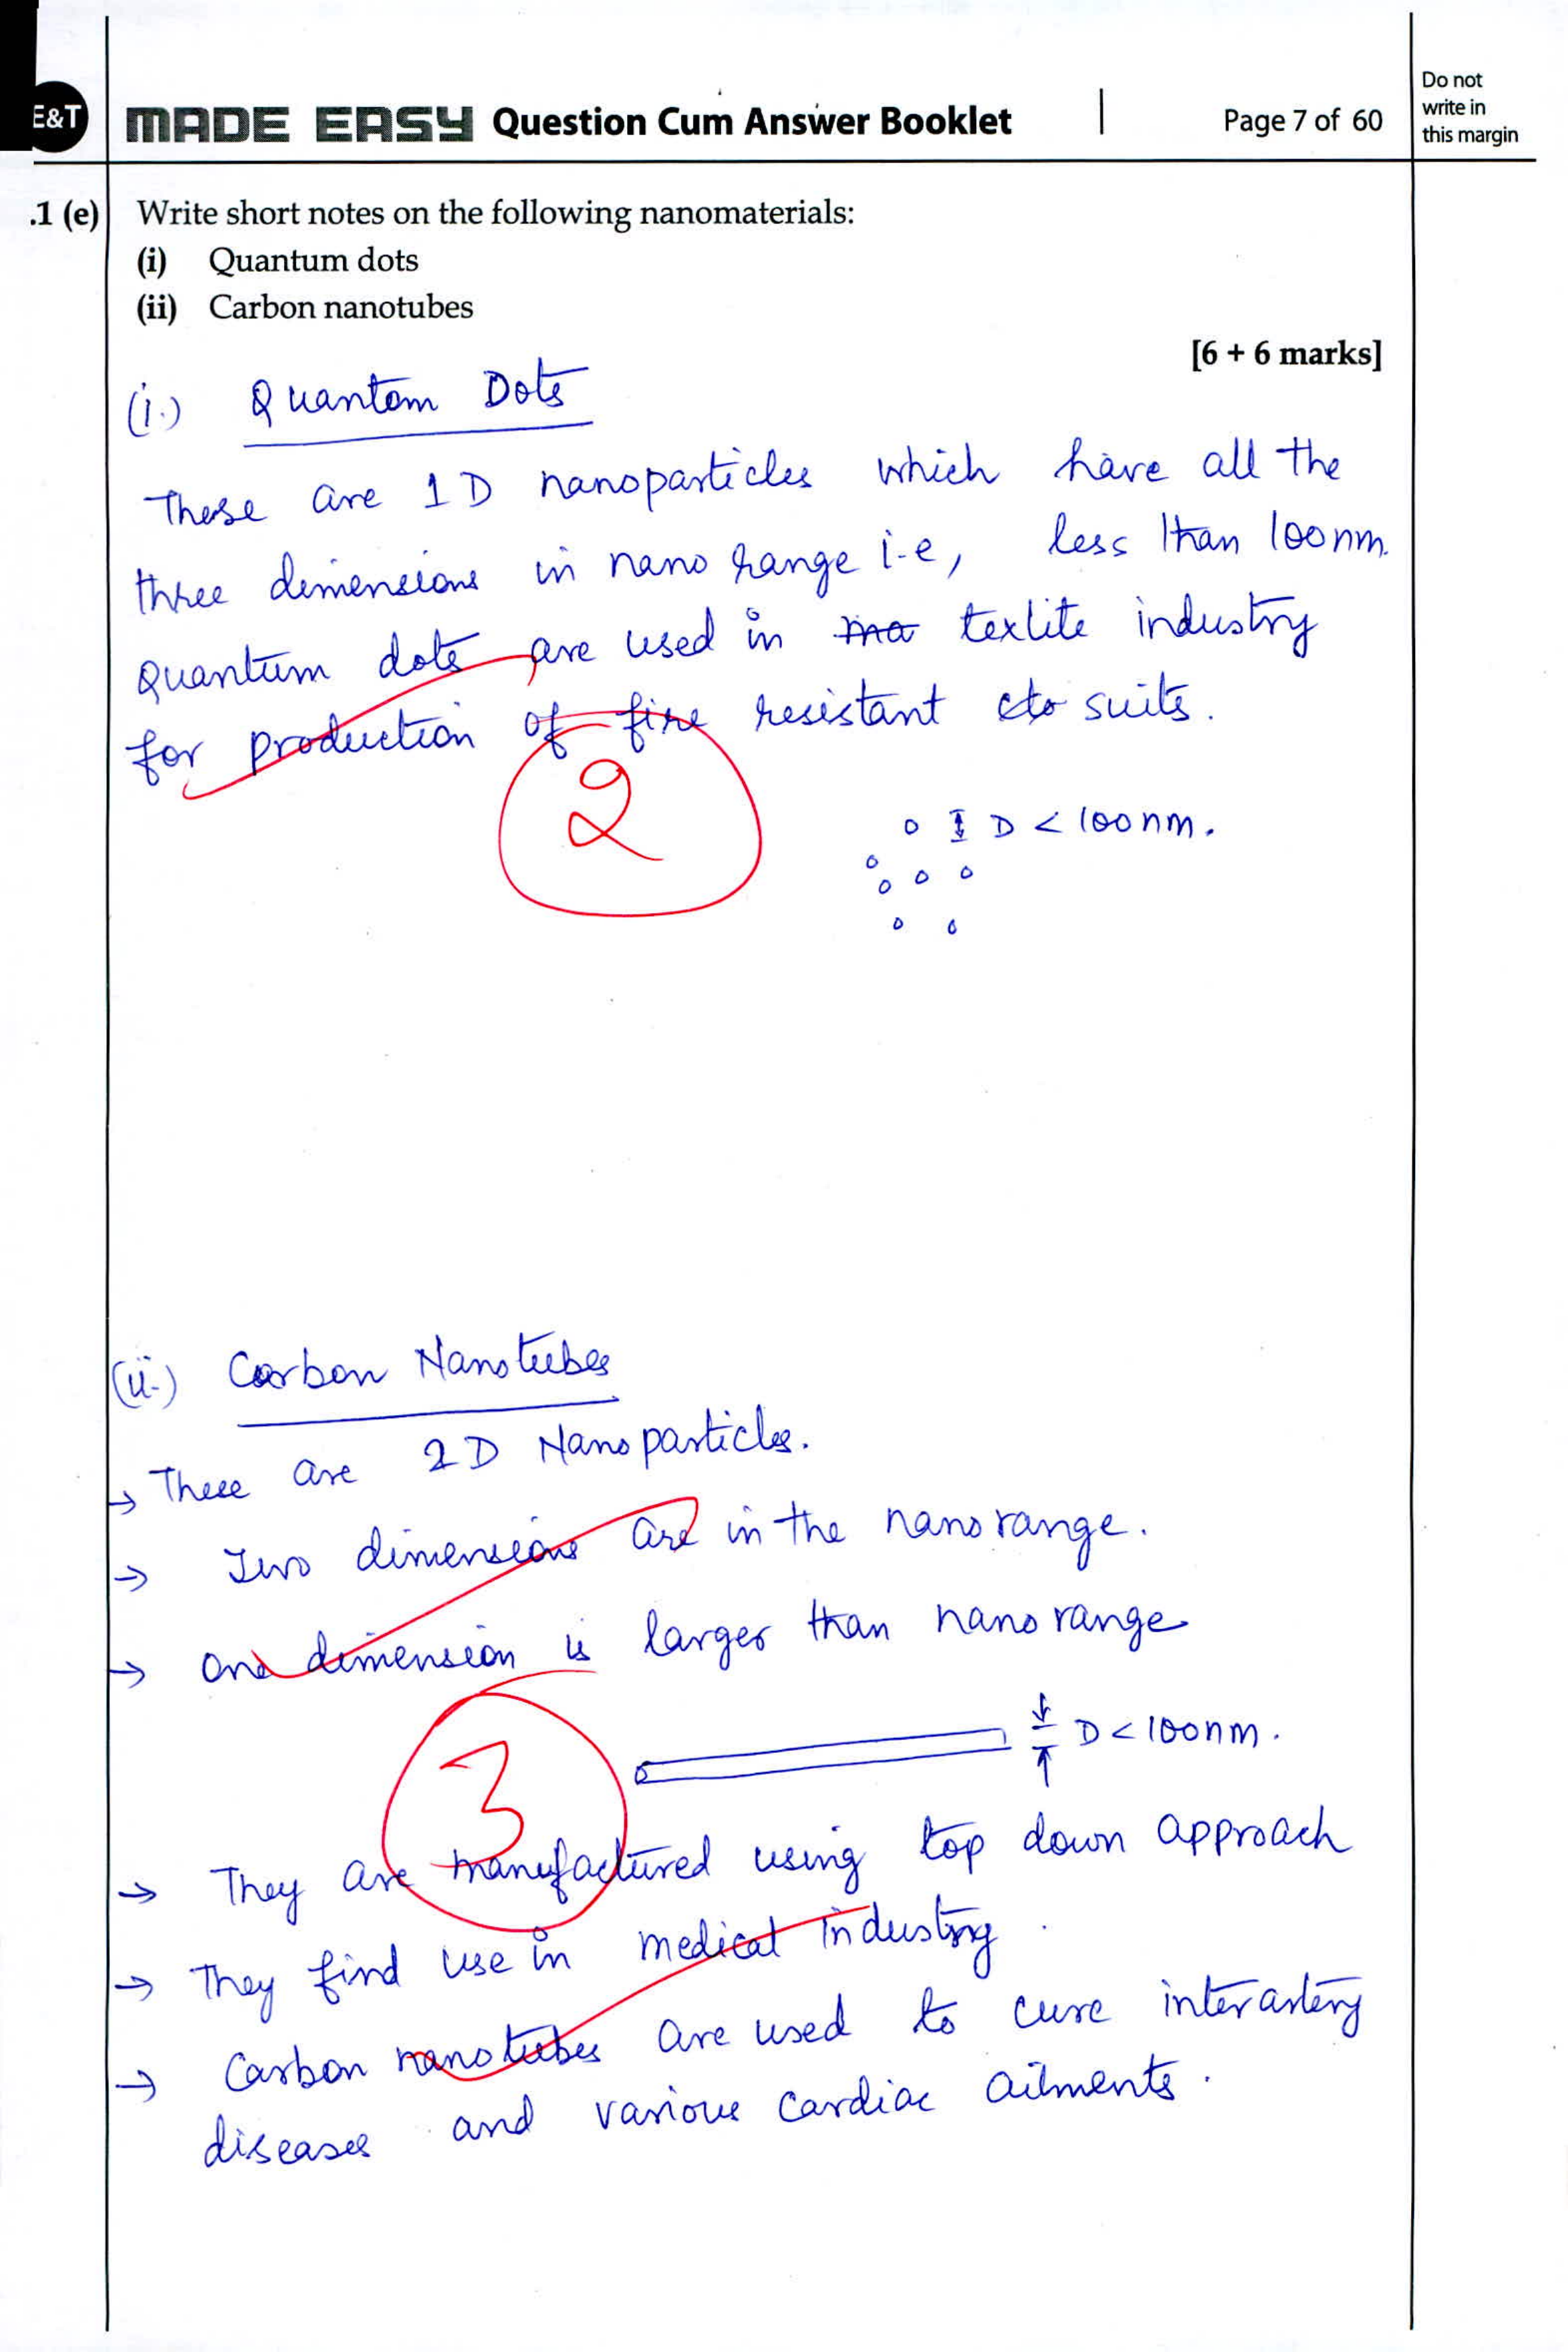 E&T
MADE EASY Question Cum Answer Booklet
Page 7 of 60
Do not
write in
this margin
.1 (e) Write short notes on the following nanomaterials:
(i) Quantum dots
(ii) Carbon nanotubes
[6 + 6 marks]
(i.) Quantom Dots
These are 1D nanoparticles which have all the
three dimensions in nano range i-e, less than 100nm.
Quantum dots are used in ma texlite industry
for production of fire resistant cto suits.
2
D < 100nm.
(ii.) Carbon Nanotubes
→ These are 2D Nanoparticles.
→ Two dimensions are in the nanorange.
→ One dimension is larger than nanorange
3
D < 100nm.
→ They are manufactured using top down approach
→ They find use in medical industry.
→ Carbon nanotubes are used to cure interartery
diseases and various cardiac ailments.